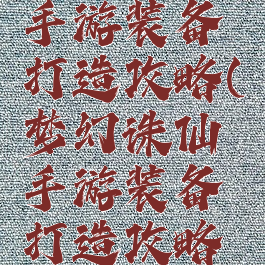 手游装备
打造攻略(
梦幻诛仙
手游装备
打造攻略